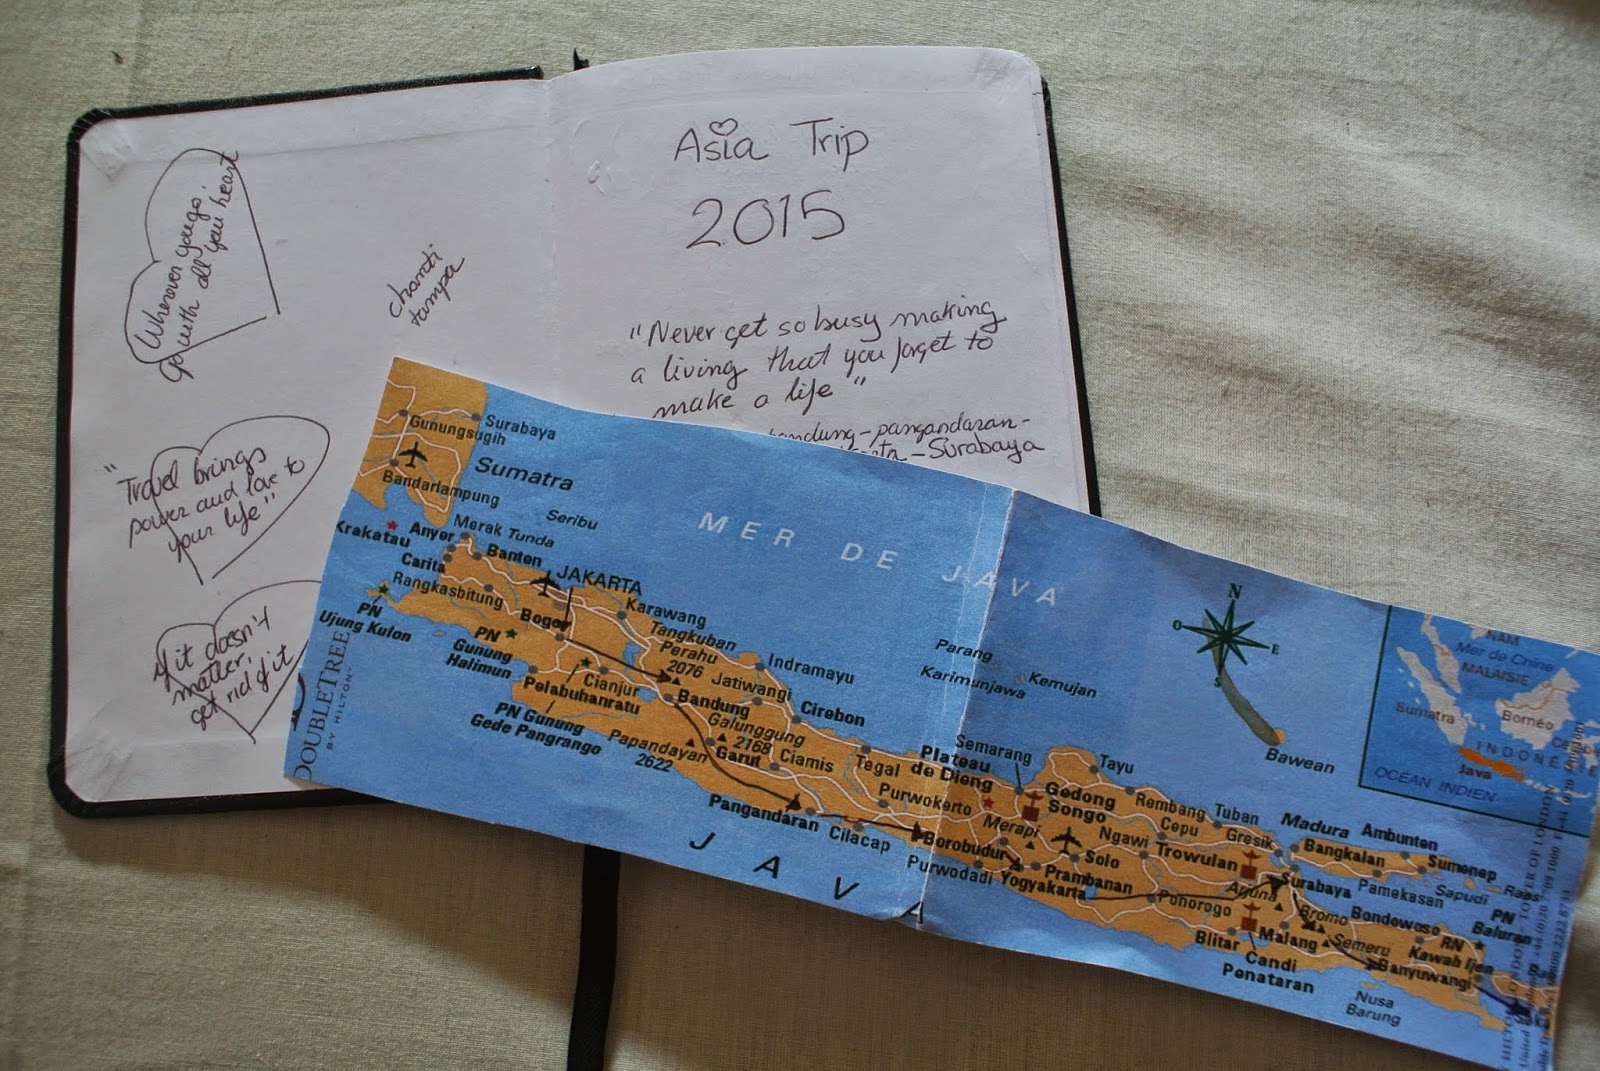 Wherever you go,
Go with all you heart
"Travel brings
power and love to
your life"
If it doesn't
matter,
get rid of it
chanti
tampa
Asia Trip
2015
"Never get so busy making
a living that you forget to
make a life"
bandung-pangandaran-
-Surabaya
Surabaya
Gunungsugih
Sumatra
Bandarlampung
Seribu
MER DE JAVA
Krakatau
Anyer
Merak
Tunda
Banten
Carita
Rangkasbitung
JAKARTA
PN
Ujung Kulon
Bogor
Karawang
Tangkuban
Perahu
2076
PN
Gunung
Halimun
Cianjur
Pelabuhanratu
Jatiwangi
Indramayu
Bandung
Cirebon
PN Gunung
Gede Pangrango
Galunggung
2168
Papandayan
2622
Garut
Ciamis
Tegal
Pangandaran
Cilacap
Purwokerto
Plateau
de Dieng
Semarang
Parang
Karimunjawa
Kemujan
Gedong
Songo
Merapi
Borobudur
Purwodadi
Yogyakarta
Prambanan
Solo
Tayu
Rembang
Cepu
Ngawi
Tuban
Gresik
Trowulan
Ponorogo
Arjuna
Surabaya
Madura
Bangkalan
Ambunten
Sumenep
Pamekasan
Sapudi
Raas
Blitar
Malang
Candi
Penataran
Bromo
Semeru
Bondowoso
RN
Kawah Ijen
PN
Baluran
Banyuwangi
Nusa
Barung
JAVA
N
O
E
S
Bawean
NAM
Mer de Chine
MALAISIE
Sumatra
Bornéo
INDONÉSIE
Java
OCÉAN INDIEN
DOUBLETREE
BY HILTON
HILTON LONDON - TOWER OF LONDON